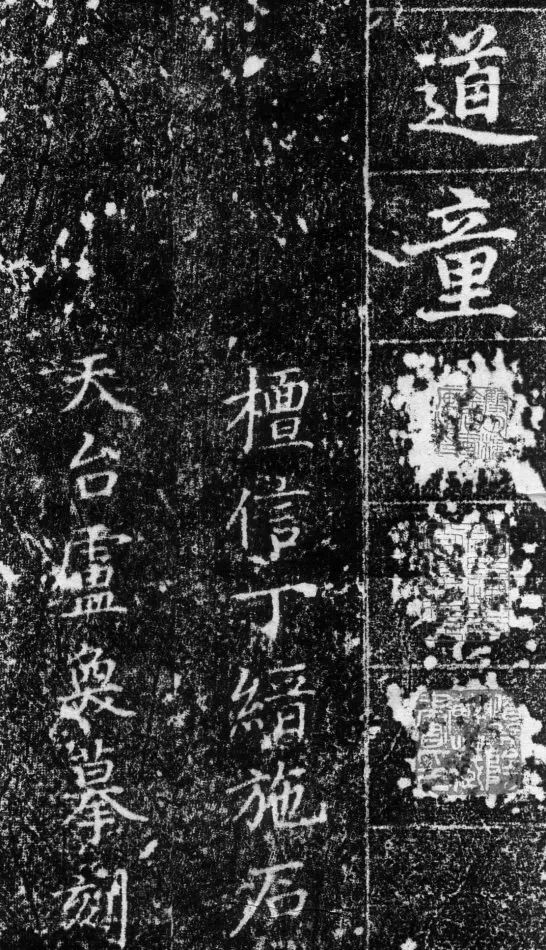 道童
檀信丁縉施石
天台盧奐摹刻